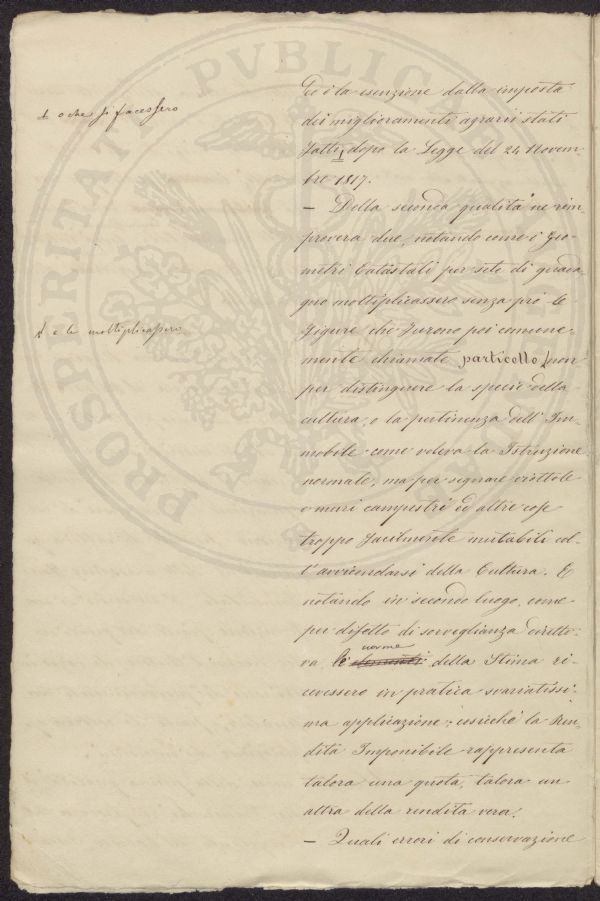 ⊥ o che si facessero
⊥ e le moltiplicassero
ed è la esenzione dalla imposta
dei miglioramenti agrarii stati
fatti ⊥ dopo la Legge del 24 Novem-
bre 1817.
— Della seconda qualità ne rim-
provera due, notando come i Geo-
metri Catastali per sete di guada-
gno moltiplicassero senza prò le
figure che furono poi comune-
mente chiamate particelle ⊥ non
per distinguere la specie della
cultura, o la pertinenza dell'Im-
mobile come voleva la Istruzione
normale, ma per segnare viottole
o muri campestri ed altre cose
troppo facilmente mutabili col-
l'avvicendarsi della Cultura. E
notando in secondo luogo, come
per difetto di sorveglianza diretti-
va le norme della Stima ri-
cevessero in pratica svariatissi-
ma applicazione; cosicchè la Ren-
dita Imponibile rappresenta
talora una quota, talora un
altra della rendita vera.
— Quali errori di conservazione
PROSPERITATI PVBLICAE